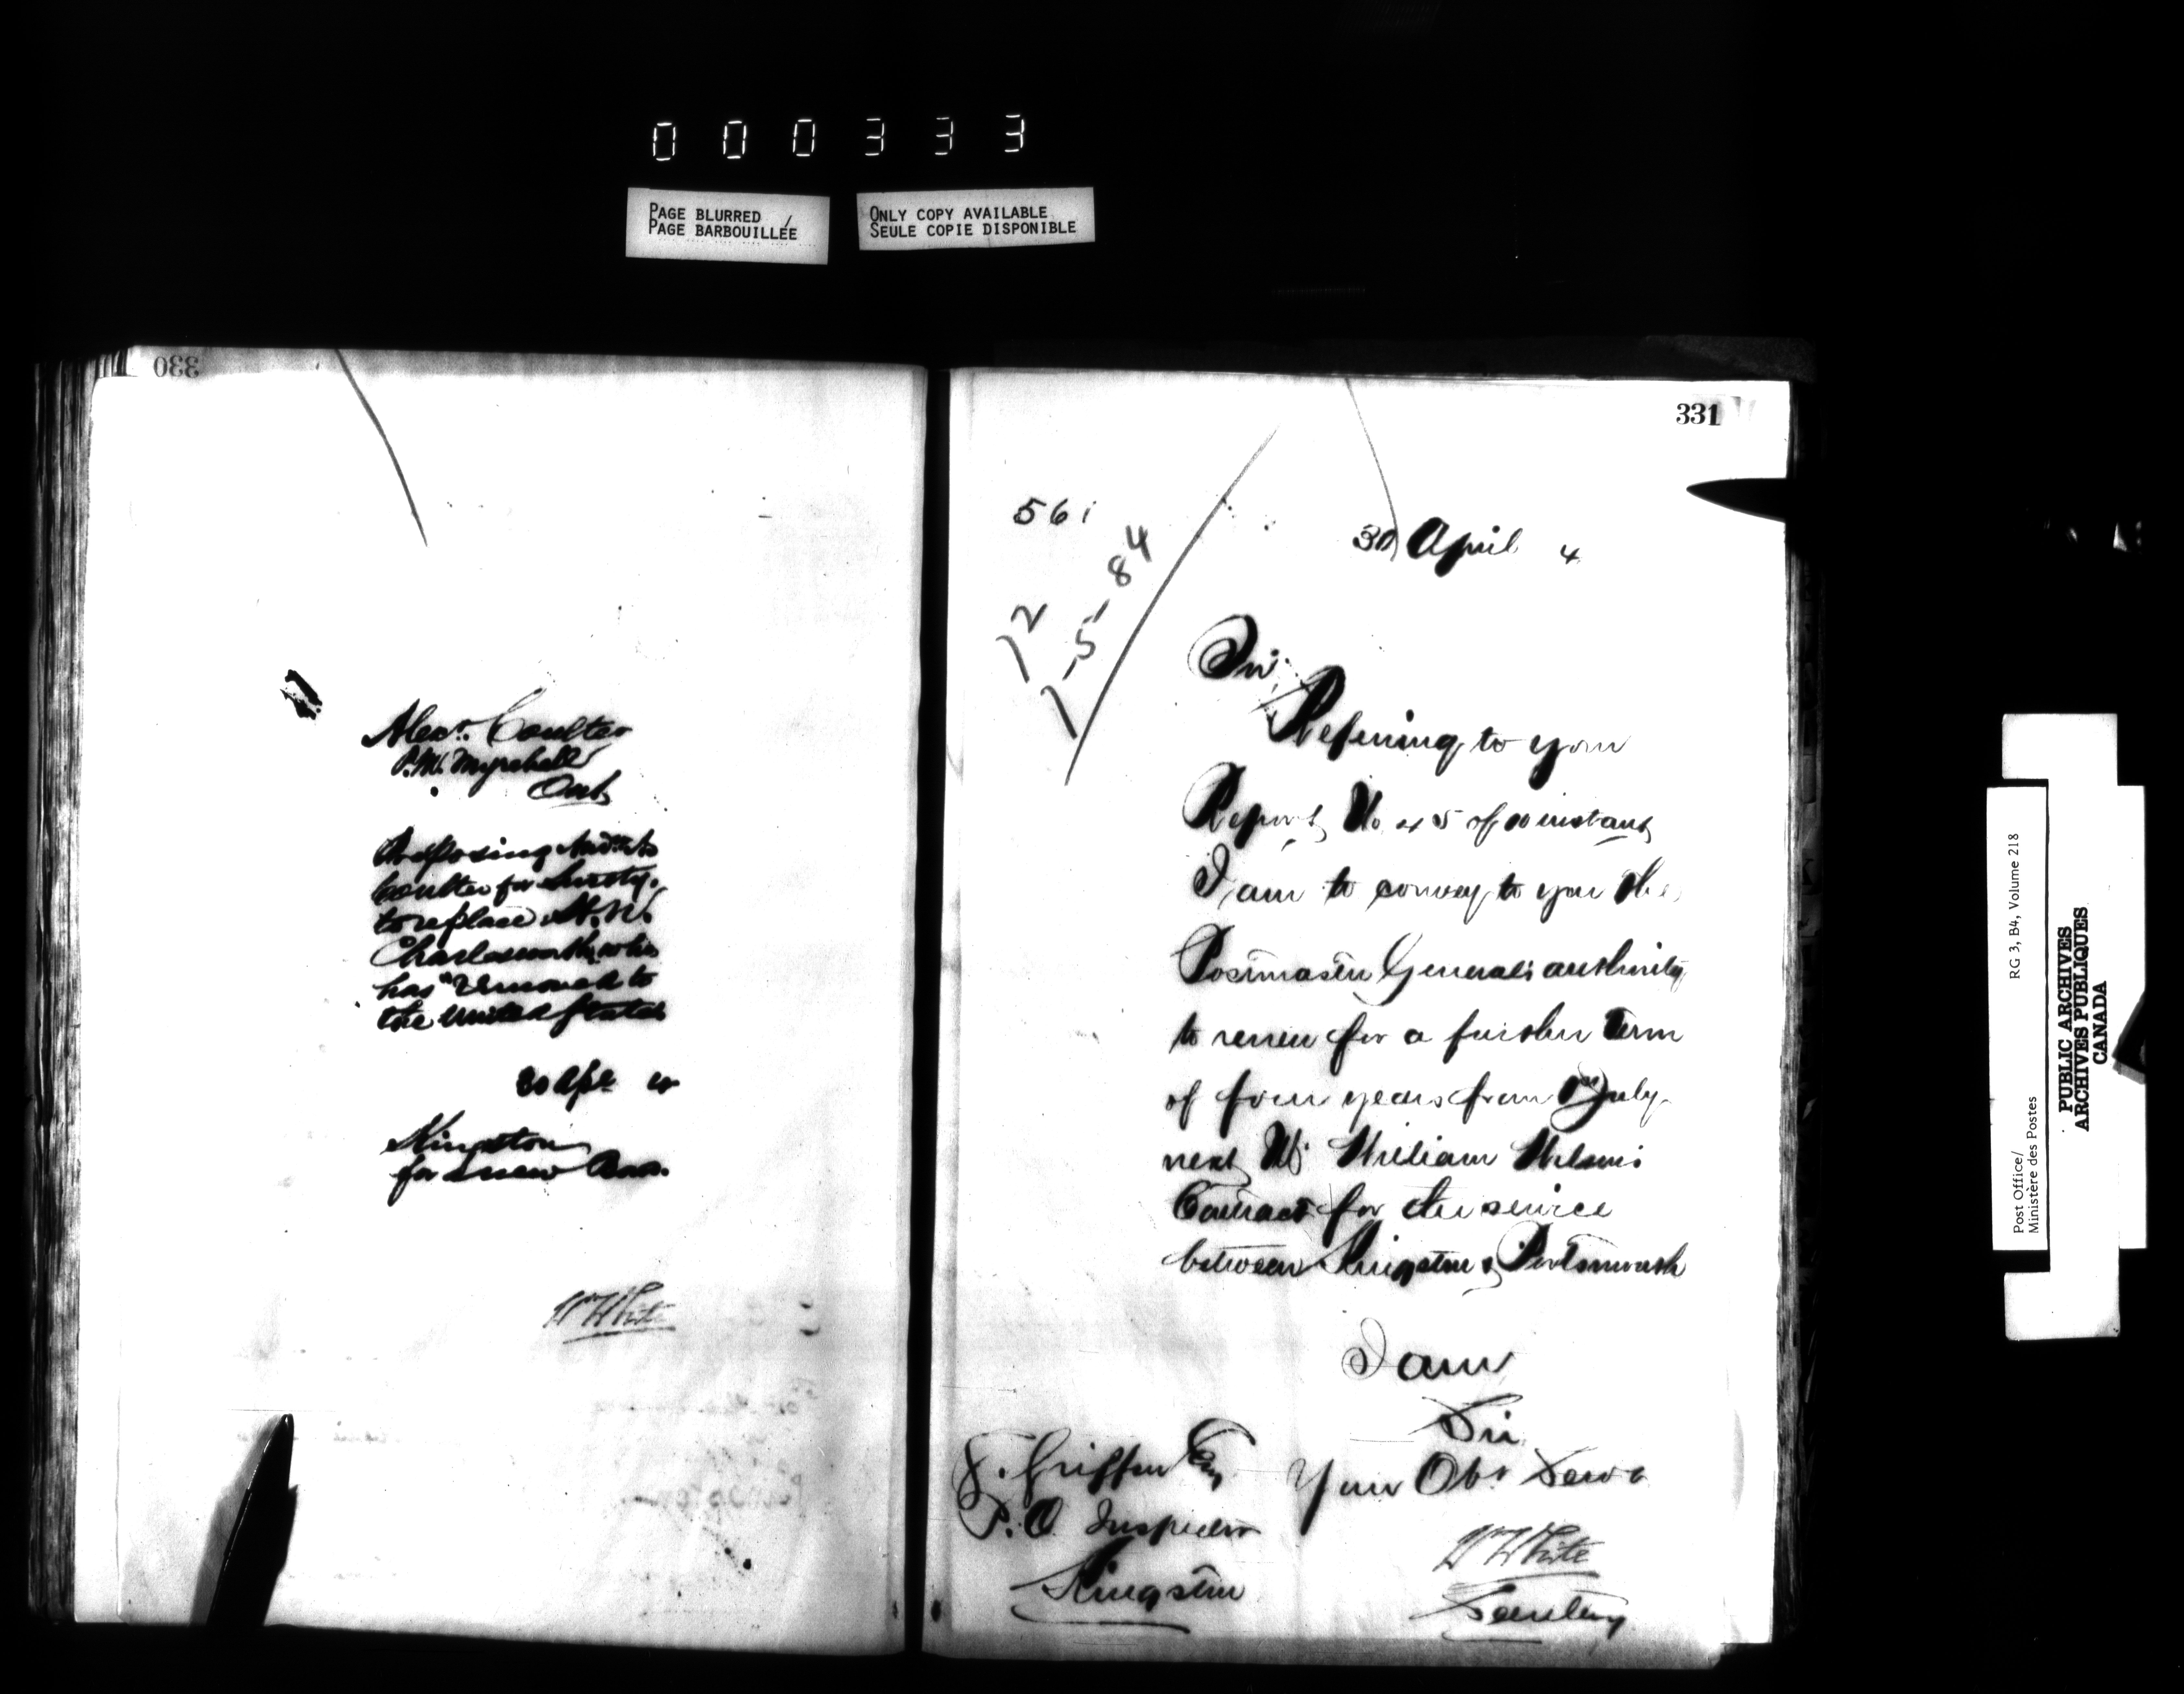 000333
PAGE BLURRED
PAGE BARBOUILLÉE
ONLY COPY AVAILABLE
SEULE COPIE DISPONIBLE
330
Alexr. Coulter
P.M. Myrehall
Ont
Coulter for Surety,
to replace
Charlesworth, who
has removed to
the United States
30 Apl
Kingston
for new
W White
331
561
30 April 4
12
1-5-84
Sir,
Referring to your
Report No 45 of instant
I am to convey to you the
Postmaster General's authority
to renew for a further Term
of four years from 1st July
next Mr William Wilson's
Contract for the service
between Kingston & Portsmouth
I am
Sir
Your Obt Servt
W White
Secretary
Griffin Esq
P. O Inspector
Kingston
Post Office/
Ministère des Postes
RG 3, B4, Volume 218
PUBLIC ARCHIVES
ARCHIVES PUBLIQUES
CANADA